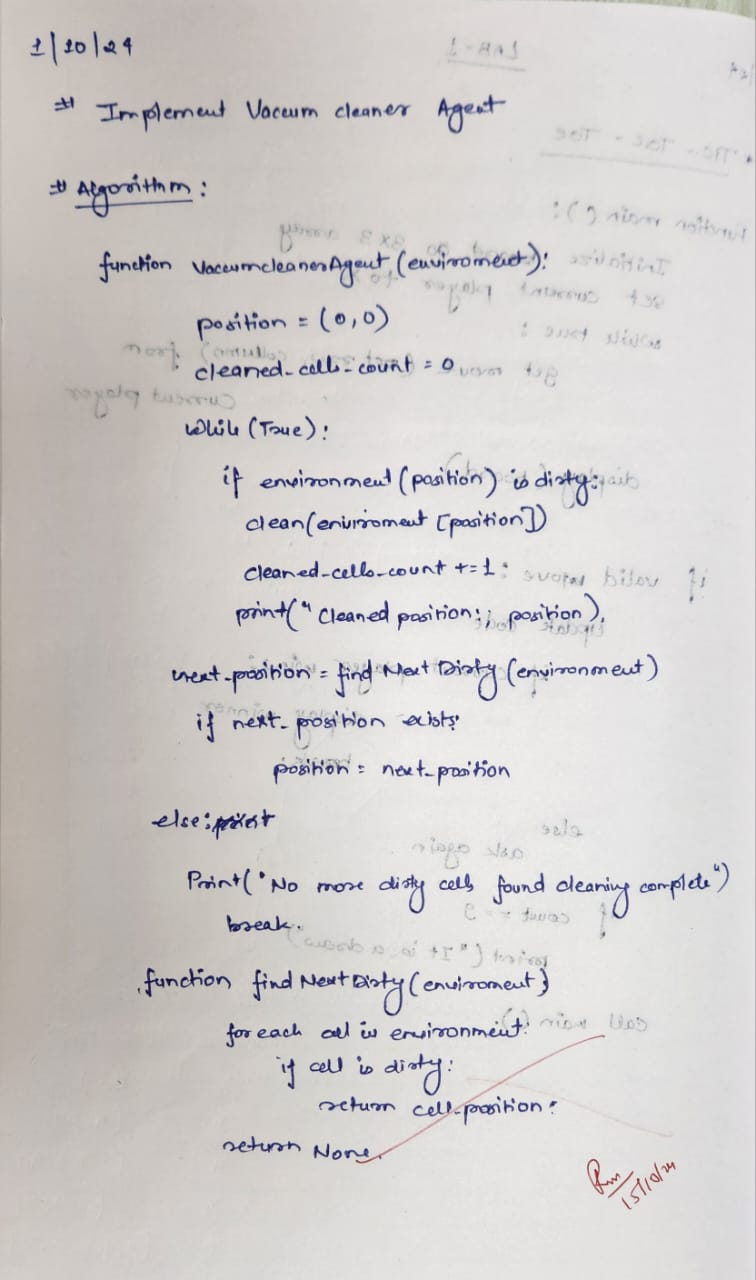 1/10/24
# Implement Vaccum cleaner Agent
# Algorithm:
function VaccumcleanerAgent (enviroment):
position = (0,0)
cleaned-cells-count = 0
While (True):
if environment (position) is dirty:
clean(enviroment [position])
cleaned-cells-count += 1
print(" Cleaned position:, position),
next-position = find Next Dirty (environment)
if next-position exists:
position = next-position
else: print
Print("No more dirty cells found cleaning complete")
break.
function find Next Dirty (enviroment)
for each cell in environment:
if cell is dirty:
return cell-position:
return None.
15/10/24